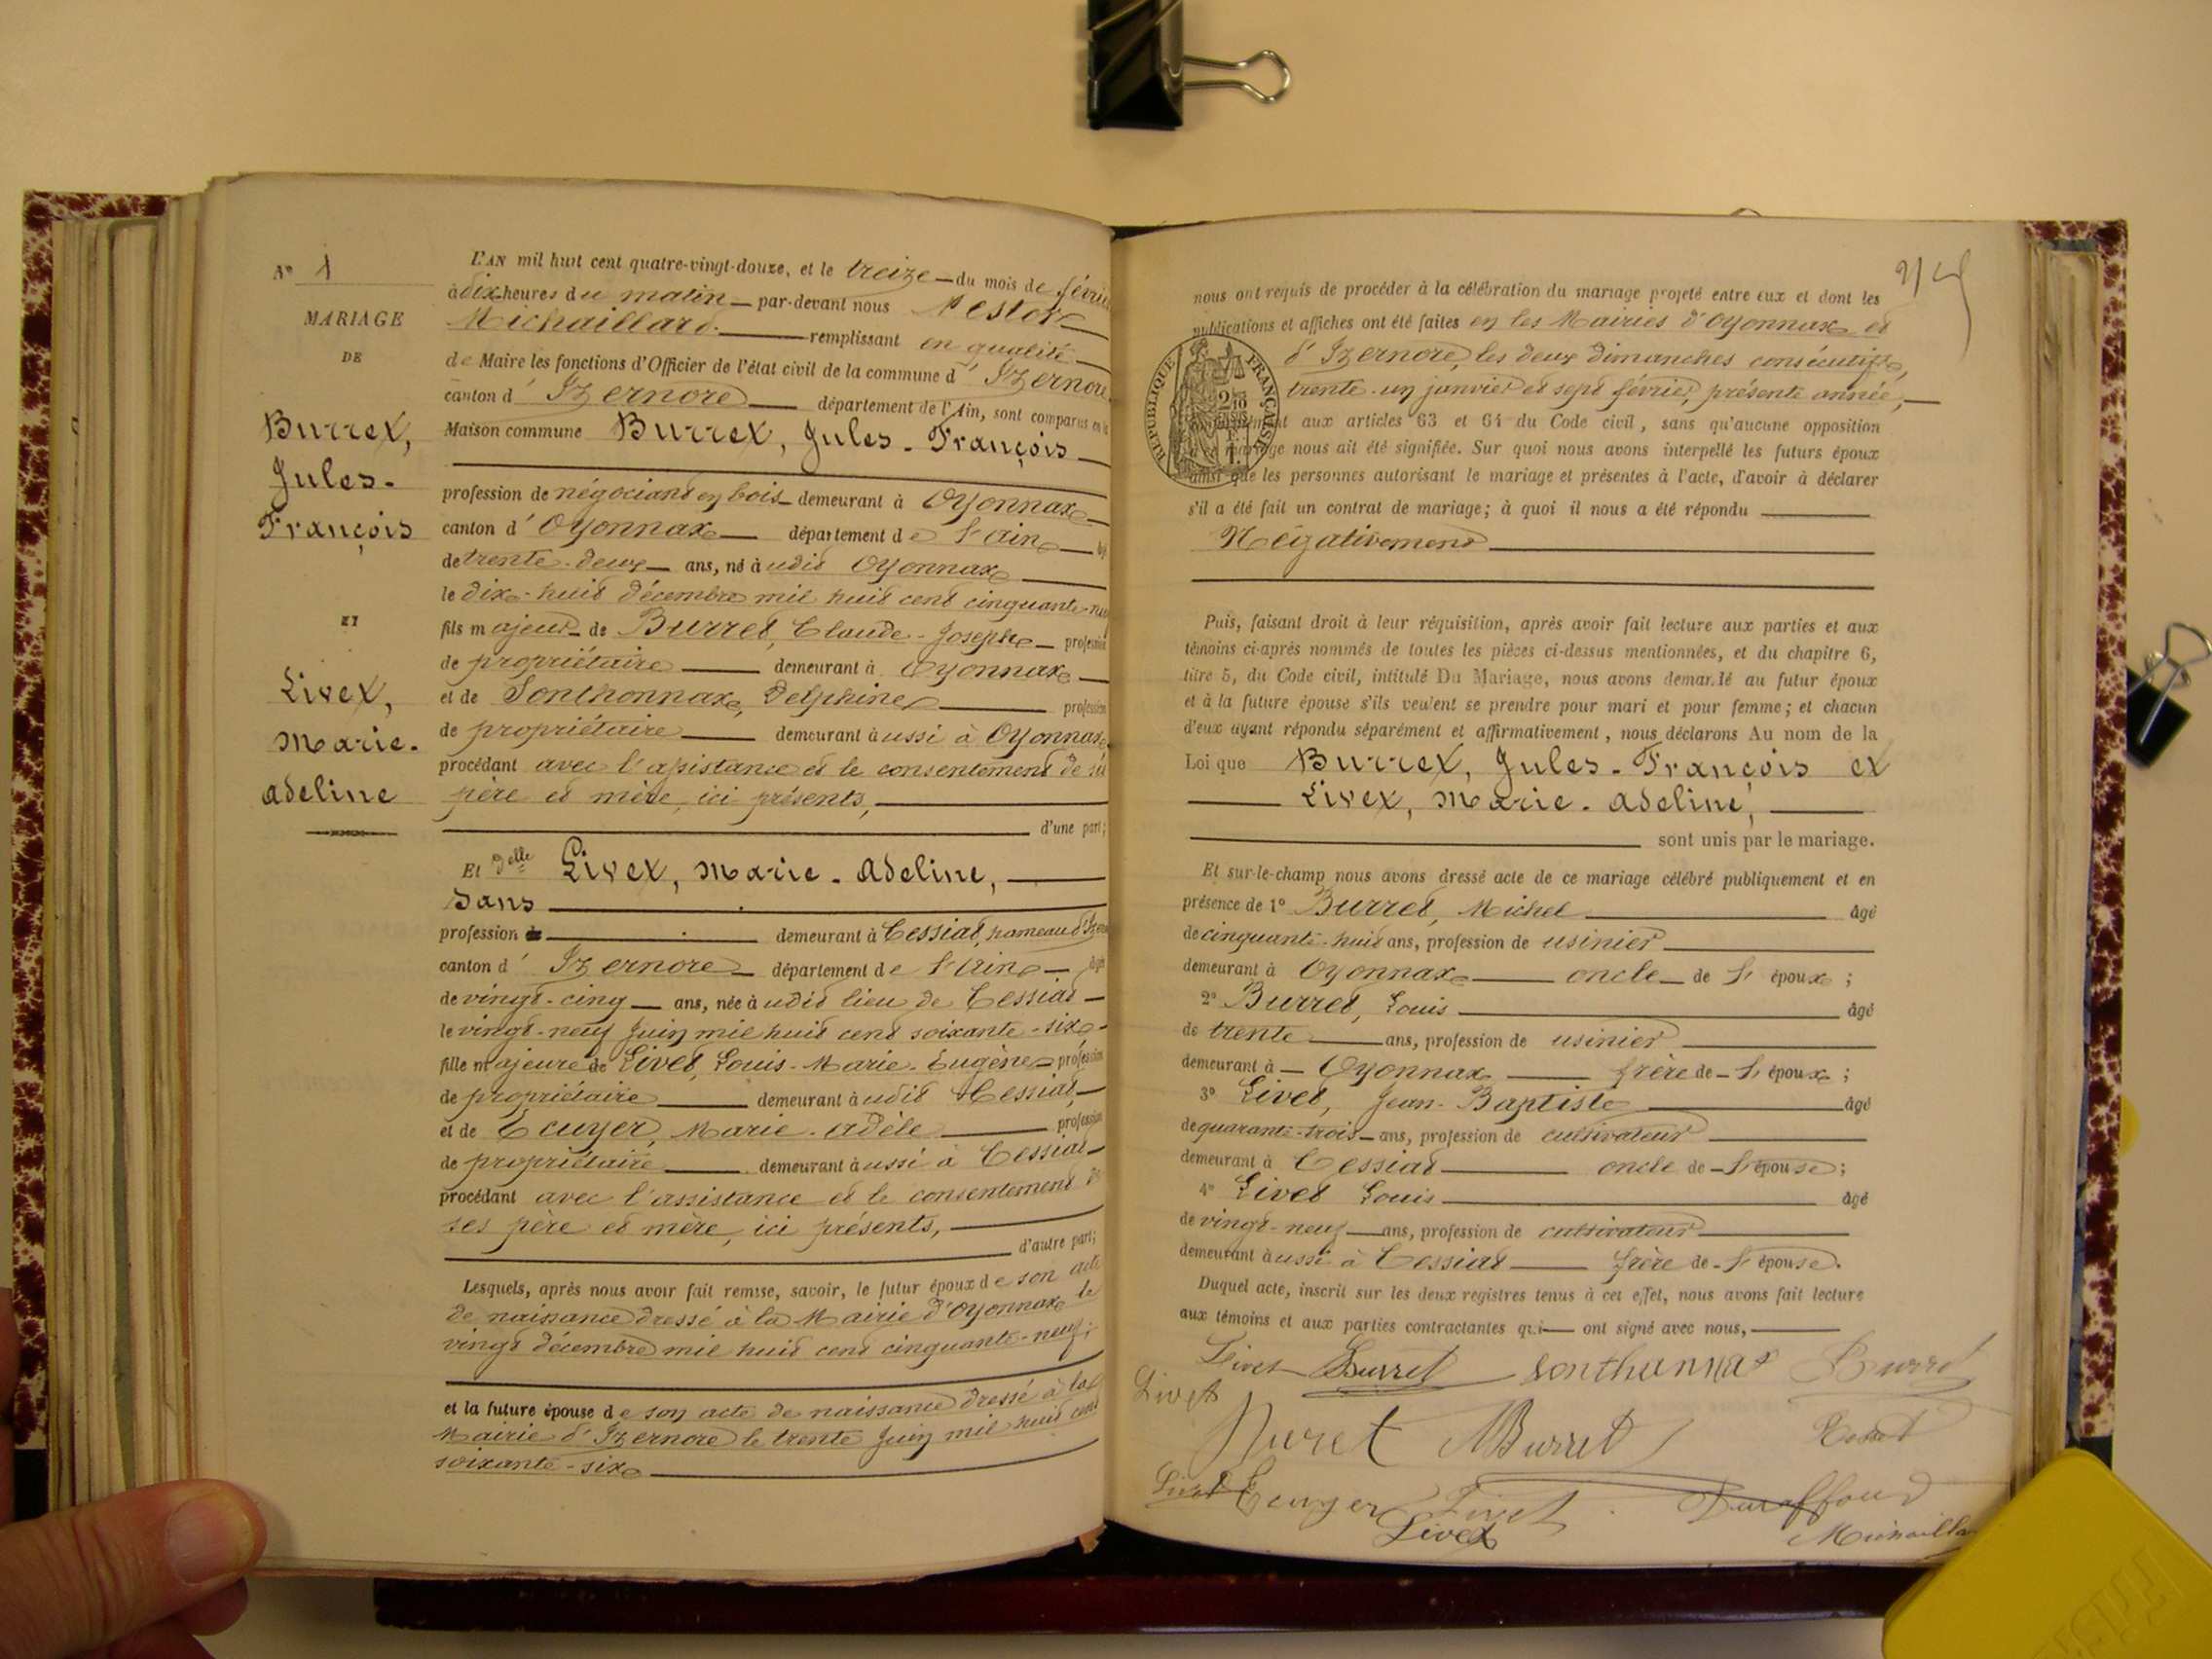 N° 1
MARIAGE
DE
Burret,
Jules-
François
ET
Livet,
Marie-
Adeline
L'AN mil huit cent quatre-vingt-douze, et le treize du mois de février
à dix heures du matin par-devant nous Nestor
Michaillard remplissant en qualité
de Maire les fonctions d'Officier de l'état civil de la commune d'Izernore
canton d'Izernore département de l'Ain, sont comparus en la
Maison commune Burret, Jules-François
profession de négociant en bois demeurant à Oyonnax
canton d'Oyonnax département de l'Ain âgé
de trente-deux ans, né à udit Oyonnax
le dix-huit décembre mil huit cent cinquante-neuf
fils majeur de Burret, Claude-Joseph profession
de propriétaire demeurant à Oyonnax
et de Sonthonnax, Delphine profession
de propriétaire demeurant aussi à Oyonnax
procédant avec l'assistance et le consentement de ses
père et mère, ici présents,
d'une part;
Et Delle Livet, Marie-Adeline,
sans
profession demeurant à Cessiat, hameau d'Izernore
canton d'Izernore département de l'Ain âgée
de vingt-cinq ans, née à udit lieu de Cessiat
le vingt-neuf Juin mil huit cent soixante-six
fille majeure de Livet, Louis-Marie-Eugène profession
de propriétaire demeurant à udit Cessiat,
et de Ecuyer, Marie-Adèle profession
de propriétaire demeurant aussi à Cessiat
procédant avec l'assistance et le consentement de
ses père et mère, ici présents,
d'autre part;
Lesquels, après nous avoir fait remise, savoir, le futur époux de son acte
de naissance dressé à la Mairie d'Oyonnax le
vingt décembre mil huit cent cinquante-neuf;
et la future épouse de son acte de naissance dressé à la
Mairie d'Izernore le trente Juin mil huit cent
soixante-six
nous ont requis de procéder à la célébration du mariage projeté entre eux et dont les
publications et affiches ont été faites en les Mairies d'Oyonnax et
d'Izernore, les deux dimanches consécutifs,
trente-un janvier et sept février, présente année,
aux articles 63 et 64 du Code civil, sans qu'aucune opposition
à ce mariage nous ait été signifiée. Sur quoi nous avons interpellé les futurs époux
ainsi que les personnes autorisant le mariage et présentes à l'acte, d'avoir à déclarer
s'il a été fait un contrat de mariage; à quoi il nous a été répondu
Négativement
RÉPUBLIQUE FRANÇAISE
Puis, faisant droit à leur réquisition, après avoir fait lecture aux parties et aux
témoins ci-après nommés de toutes les pièces ci-dessus mentionnées, et du chapitre 6,
titre 5, du Code civil, intitulé Du Mariage, nous avons demandé au futur époux
et à la future épouse s'ils veulent se prendre pour mari et pour femme; et chacun
d'eux ayant répondu séparément et affirmativement, nous déclarons Au nom de la
Loi que Burret, Jules-François et
Livet, Marie-Adeline,
sont unis par le mariage.
Et sur-le-champ nous avons dressé acte de ce mariage célébré publiquement et en
présence de 1° Burret, Michel âgé
de cinquante-huit ans, profession de usinier
demeurant à Oyonnax oncle de l'époux;
2° Burret, Louis âgé
de trente ans, profession de usinier
demeurant à Oyonnax frère de l'époux;
3° Livet, Jean-Baptiste âgé
de quarante-trois ans, profession de cultivateur
demeurant à Cessiat oncle de l'épouse;
4° Livet Louis âgé
de vingt-neuf ans, profession de cultivateur
demeurant aussi à Cessiat frère de l'épouse.
Duquel acte, inscrit sur les deux registres tenus à cet effet, nous avons fait lecture
aux témoins et aux parties contractantes qui ont signé avec nous,
Livet Burret Sonthonnax Burret
Livet
Buret MBurret
Livet Ecuyer Livet Duraffour
Livet Michaillard